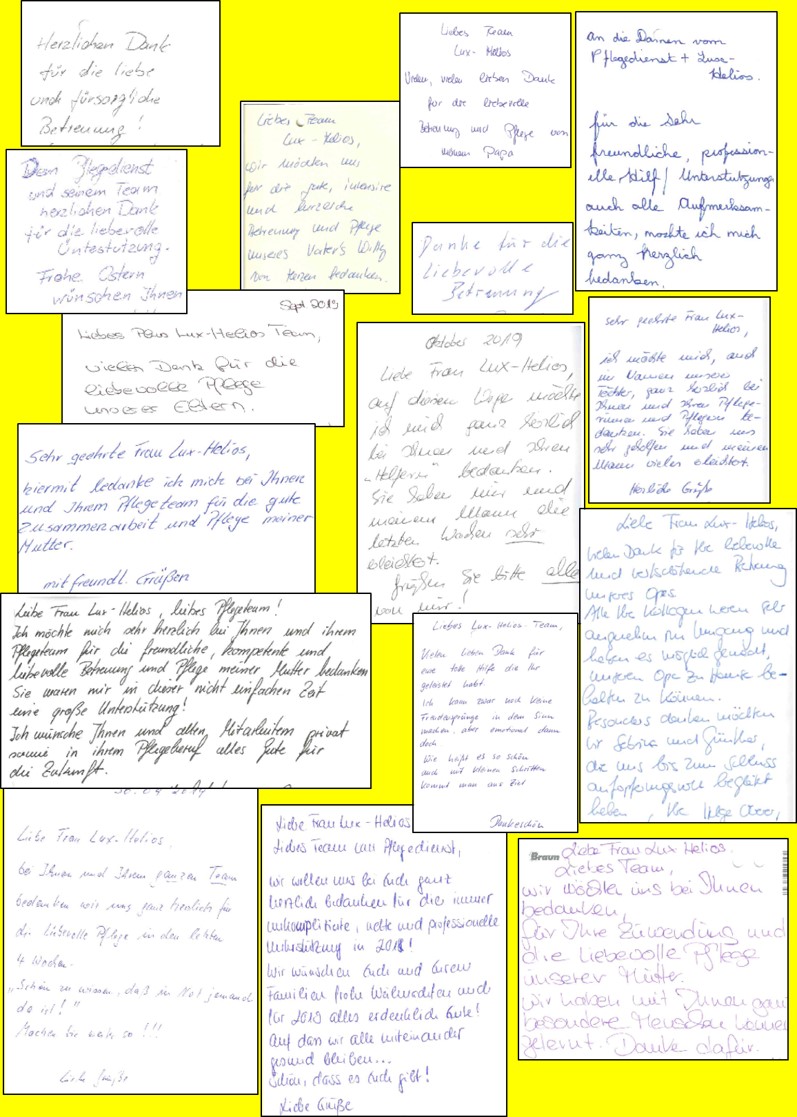 Herzlichen Dank
für die liebe
und fürsorgliche
Betreuung!
Dem Pflegedienst
und seinem Team
herzlichen Dank
für die liebevolle
Unterstützung.
Frohe Ostern
wünschen Ihnen
Liebes Team
Lux-Helios,
wir möchten uns
für die gute, intensive
und herzliche
Betreuung und Pflege
unseres Vater's Willy
von Herzen bedanken.
Liebes Team
Lux-Helios
Vielen, vielen lieben Dank
für die liebevolle
Betreuung und Pflege von
meinem Papa
an die Damen vom
Pflegedienst + Luxe-
Helios.
für die sehr
freundliche, profession-
elle, Hilf/Unterstutzung,
auch alle Aufmerksam-
keiten, mochte ich mich
ganz herzlich
bedanken.
Danke für die
liebevolle
Betreuung
Sept 2019
Liebes Lux-Helios Team,
vielen Dank für die
liebevolle Pflege
unserer Eltern.
Oktober 2019
Liebe Frau Lux-Helios,
auf diesem Wege möchte
ich mich ganz herzlich
bei Ihnen und Ihren
"Helfern" bedanken.
Sie haben mir und
meinem Mann die
letzten Wochen sehr
erleichtert.
Grüßen Sie bitte alle
von mir!
Sehr geehrte Frau Lux-
Helios,
ich möchte mich, auch
im Namen unserer
Töchter, ganz herzlich bei
Ihnen und Ihren Pflege-
rinnen und Pflegern be-
danken. Sie haben uns
sehr geholfen und meinem
Mann vieles erleichtert.
Herzliche Grüße
Sehr geehrte Frau Lux-Helios,
hiermit bedanke ich mich bei Ihnen
und Ihrem Pflegeteam für die gute
Zusammenarbeit und Pflege meiner
Mutter.
mit freundl. Grüßen
Liebe Frau Lux-Helios,
vielen Dank für Ihre liebevolle
und wertschätzende Betreuung
unseres Opas
Alle Ihre Kollegen waren sehr
angenehm im Umgang und
haben es möglich gemacht,
unseren Opa zu Hause be-
halten zu können.
Besonders danken möchten
wir Sabina und Günther,
die uns bis zum Schluss
aufopferungsvoll begleitet
haben, Ihre
Liebe Frau Lux-Helios, liebes Pflegeteam!
Ich möchte mich sehr herzlich bei Ihnen und ihrem
Pflegeteam für die freundliche, kompetente und
liebevolle Betreuung und Pflege meiner Mutter bedanken
Sie waren mir in dieser nicht einfachen Zeit
eine große Unterstützung!
Ich wünsche Ihnen und allen Mitarbeitern privat
sowie in ihrem Pflegeberuf alles Gute für
die Zukunft.
Liebes Lux-Helios-Team,
Vielen lieben Dank für
eure tolle Hilfe die Ihr
geleistet habt.
Ich kann zwar noch keine
Freudensprünge in dem Sinn
machen, aber emotional dann
doch.
Wie heißt es so schön
auch mit kleinen Schritten
kommt man ans Ziel
Dankeschön
Liebe Frau Lux-Helios,
bei Ihnen und Ihrem ganzen Team
bedanken wir uns ganz herzlich für
die liebevolle Pflege in den letzten
4 Wochen.
"Schön zu wissen, daß in Not jemand
da ist!"
Machen Sie weiter so!!!
Liebe Grüße
Liebe Frau Lux-Helios
Liebes Team vom Pflegedienst,
wir wollen uns bei Euch ganz
herzlich bedanken für die immer
unkomplizierte, nette und professionelle
Unterstützung in 2018!
Wir wünschen Euch und Euren
Familien frohe Weihnachten und
für 2019 alles erdenklich Gute!
Auf das wir alle miteinander
gesund bleiben...
Schön, dass es Euch gibt!
Liebe Grüße
Braun
Liebe Frau Lux Helios.
Liebes Team,
wir möchten uns bei Ihnen
bedanken,
für Ihre Zuwendung und
die liebevolle Pflege
unserer Mutter.
Wir haben mit Ihnen ganz
besondere Menschen kennen
gelernt. Danke dafür.